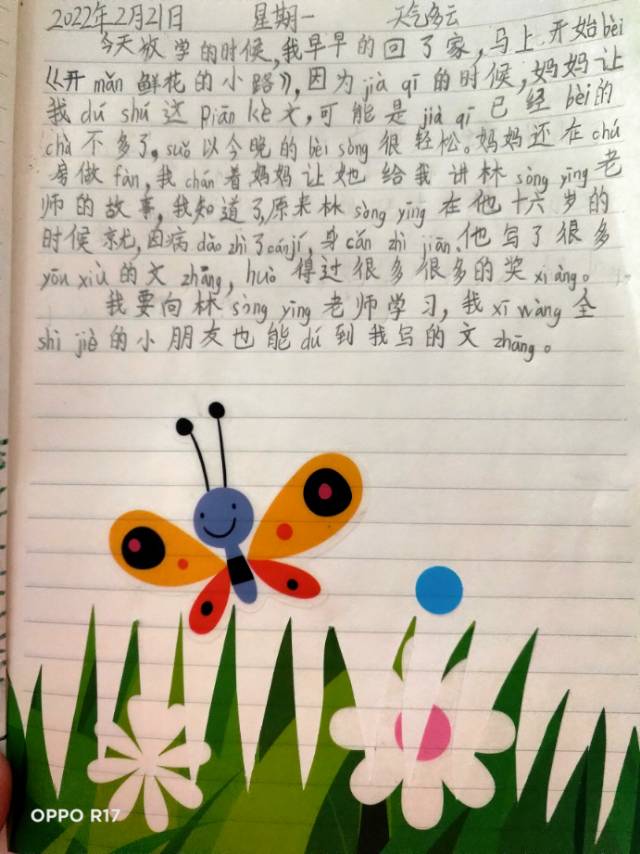 2022年2月21日 星期一 天气多云
今天放学的时候,我早早的回了家,马上开始bèi
《开mǎn鲜花的小路》,因为jià qī的时候,妈妈让
我dú shú这piān kè文,可能是jià qī已经bèi的
chà不多了。suǒ以今晚的bèi sòng很轻松。妈妈还在chú
房做fàn,我chán着妈妈让她给我讲林sòng yīng老
师的故事,我知道了,原来林sòng yīng在他十六岁的
时候就因病dǎo zhì了cánjí,身cán zhì jiān,他写了很多
yōu xiù的文zhāng,huò得过很多很多的奖xiàng。
我要向林sòng yīng老师学习,我xī wàng全
shì jiè的小朋友也能dú到我写的文zhāng。
OPPO R17